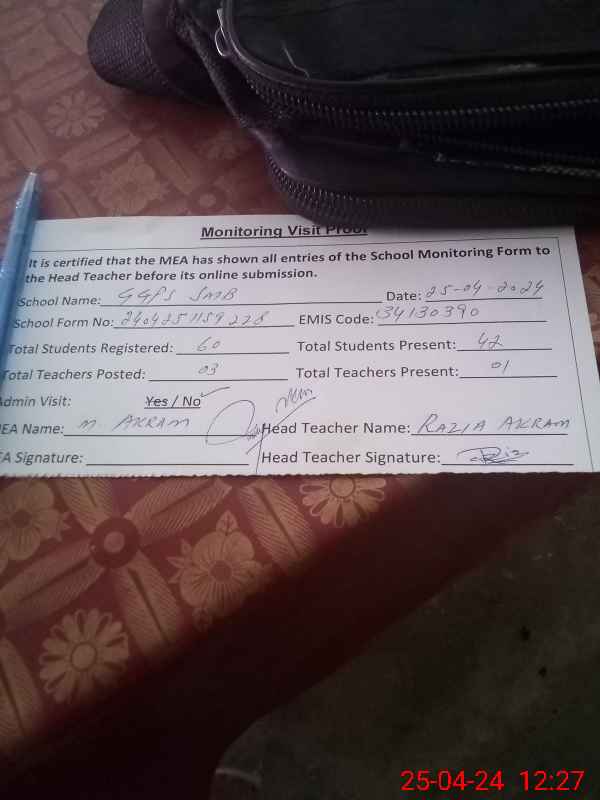 Monitoring Visit Proof
It is certified that the MEA has shown all entries of the School Monitoring Form to
the Head Teacher before its online submission.
School Name: GGPS SMB Date: 25-04-2024
School Form No: 2404251159228 EMIS Code: 34130390
Total Students Registered: 60 Total Students Present: 42
Total Teachers Posted: 03 Total Teachers Present: 01
Admin Visit: Yes / No
MEA Name: M. AKRAM Head Teacher Name: RAZIA AKRAM
EA Signature: Head Teacher Signature:
25-04-24 12:27